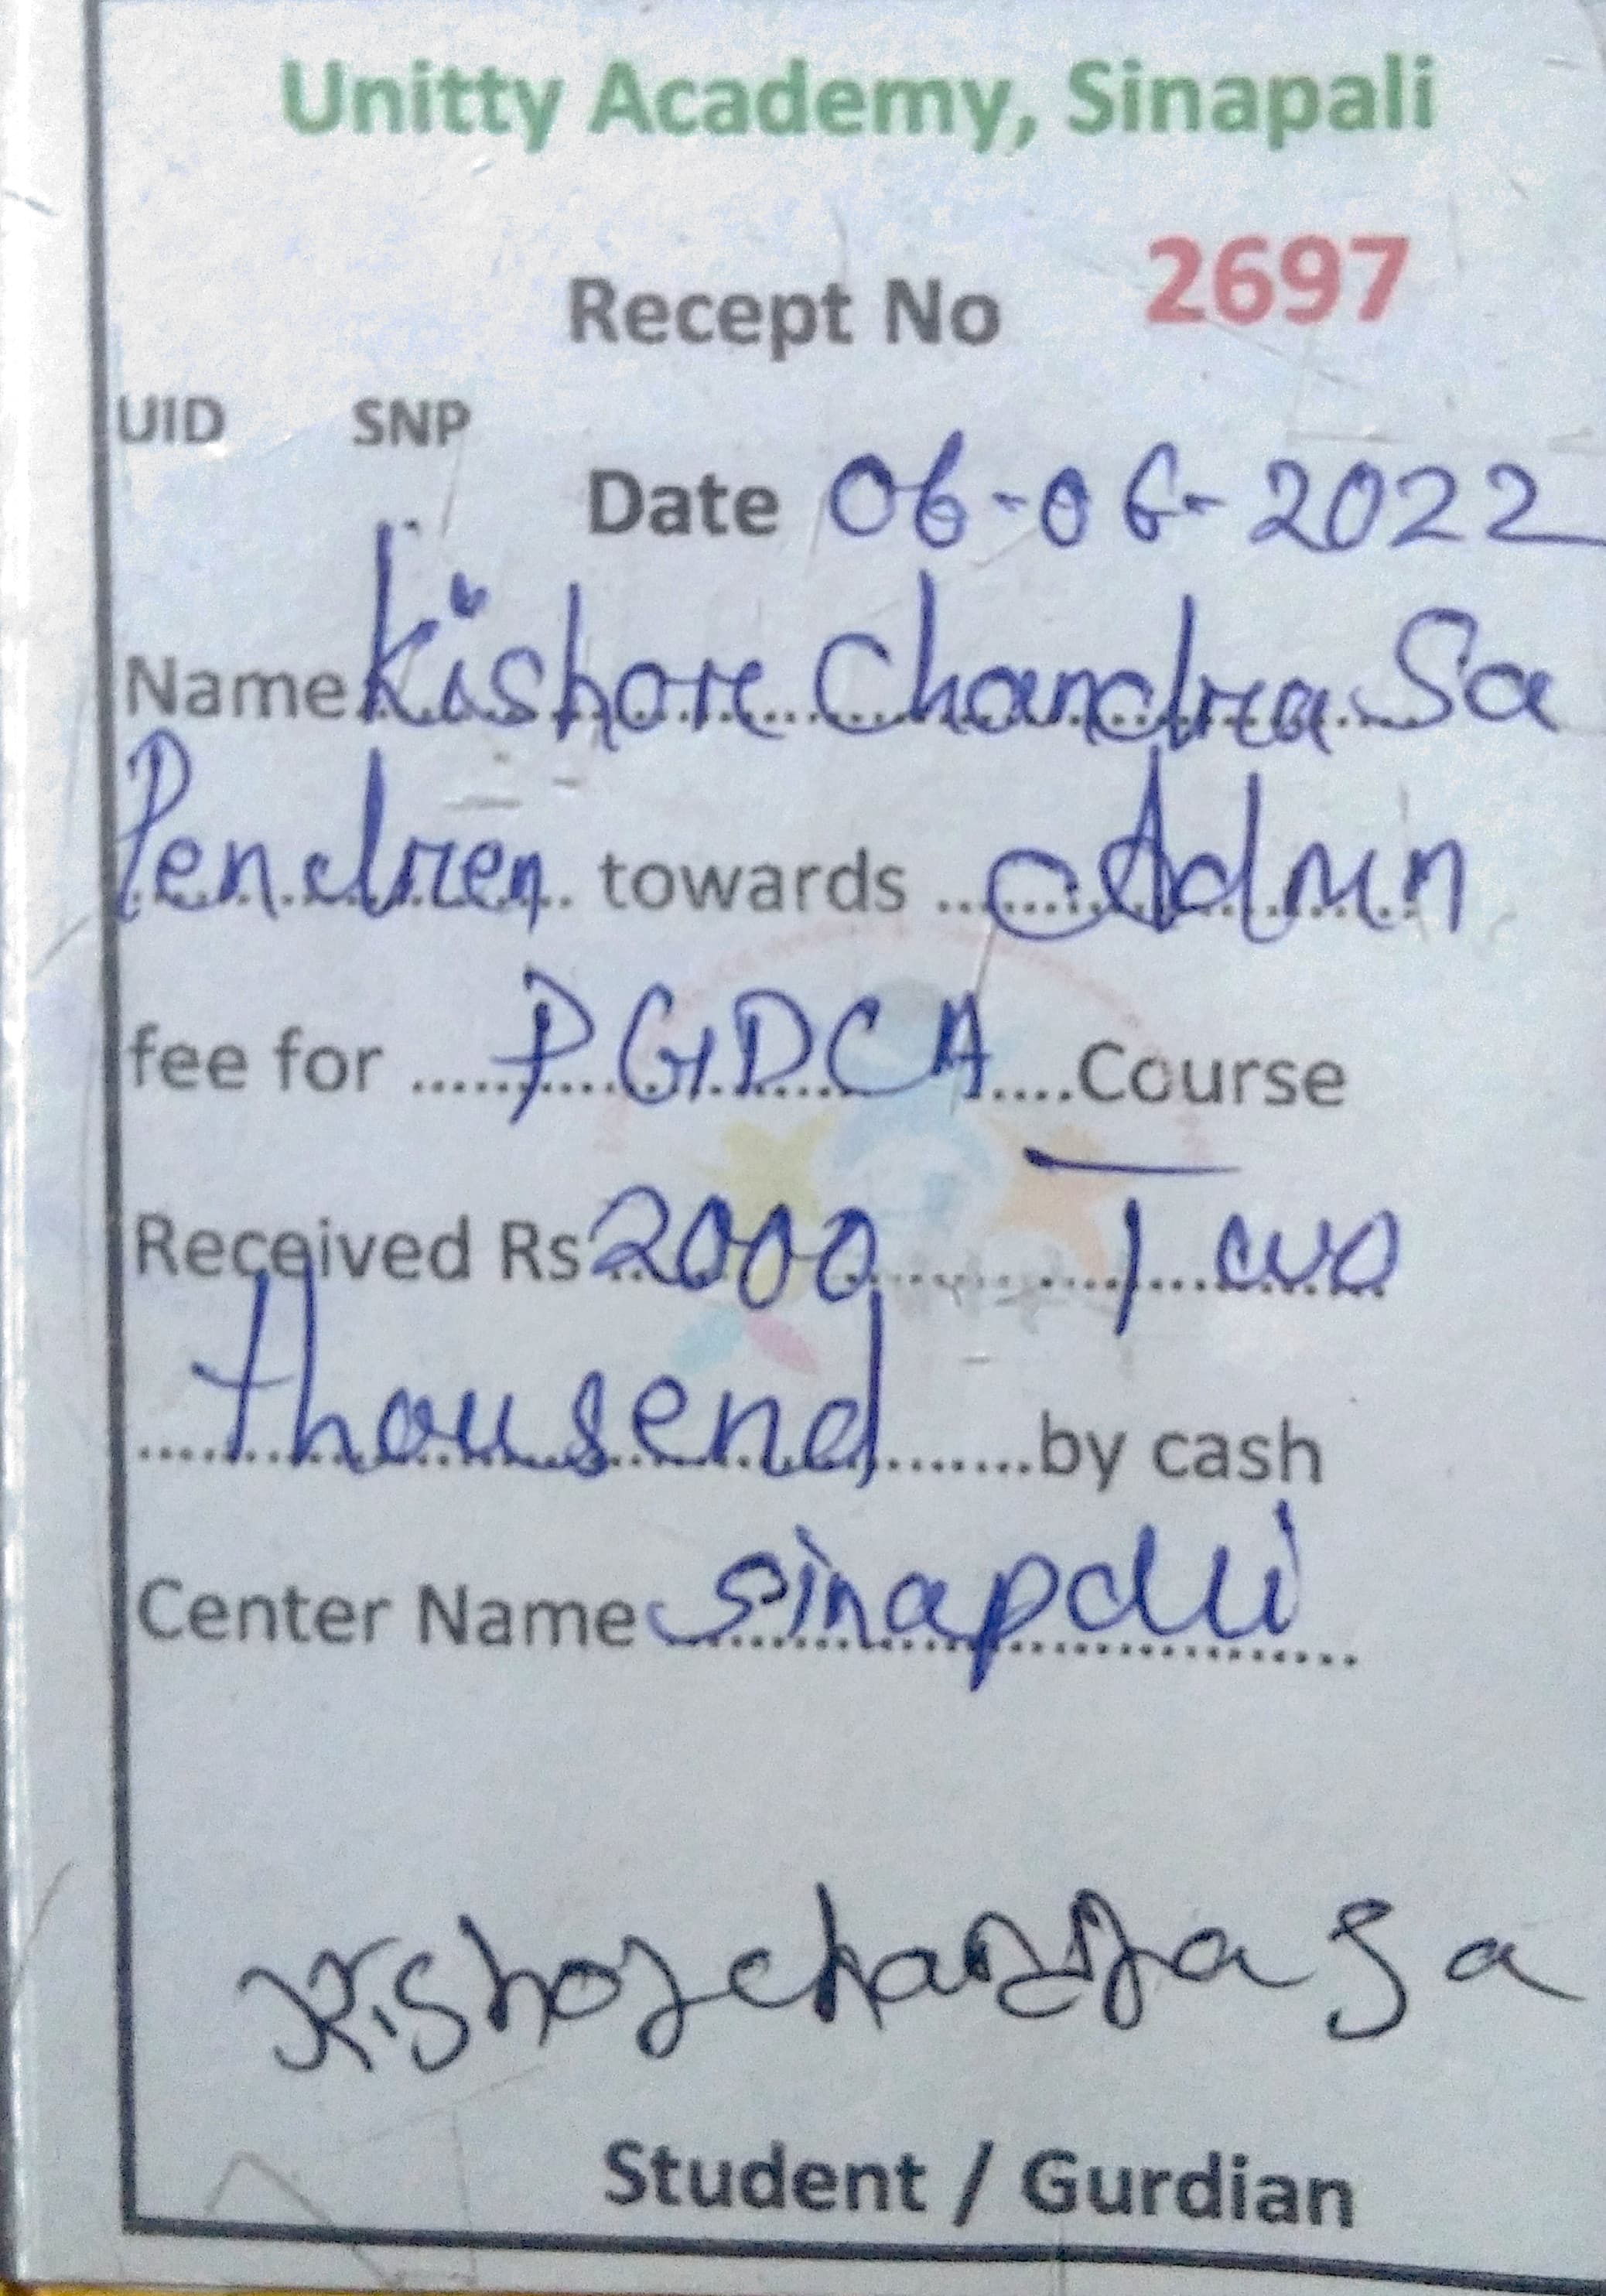 Unitty Academy, Sinapali
Recept No 2697
UID SNP
Date 06-06-2022
Name Kishore Chandra Sa
Pendren towards Admn
fee for PGDCA Course
Received Rs 2000 Two
thousend by cash
Center Name Sinapali
Kishor chandra Sa
Student / Gurdian